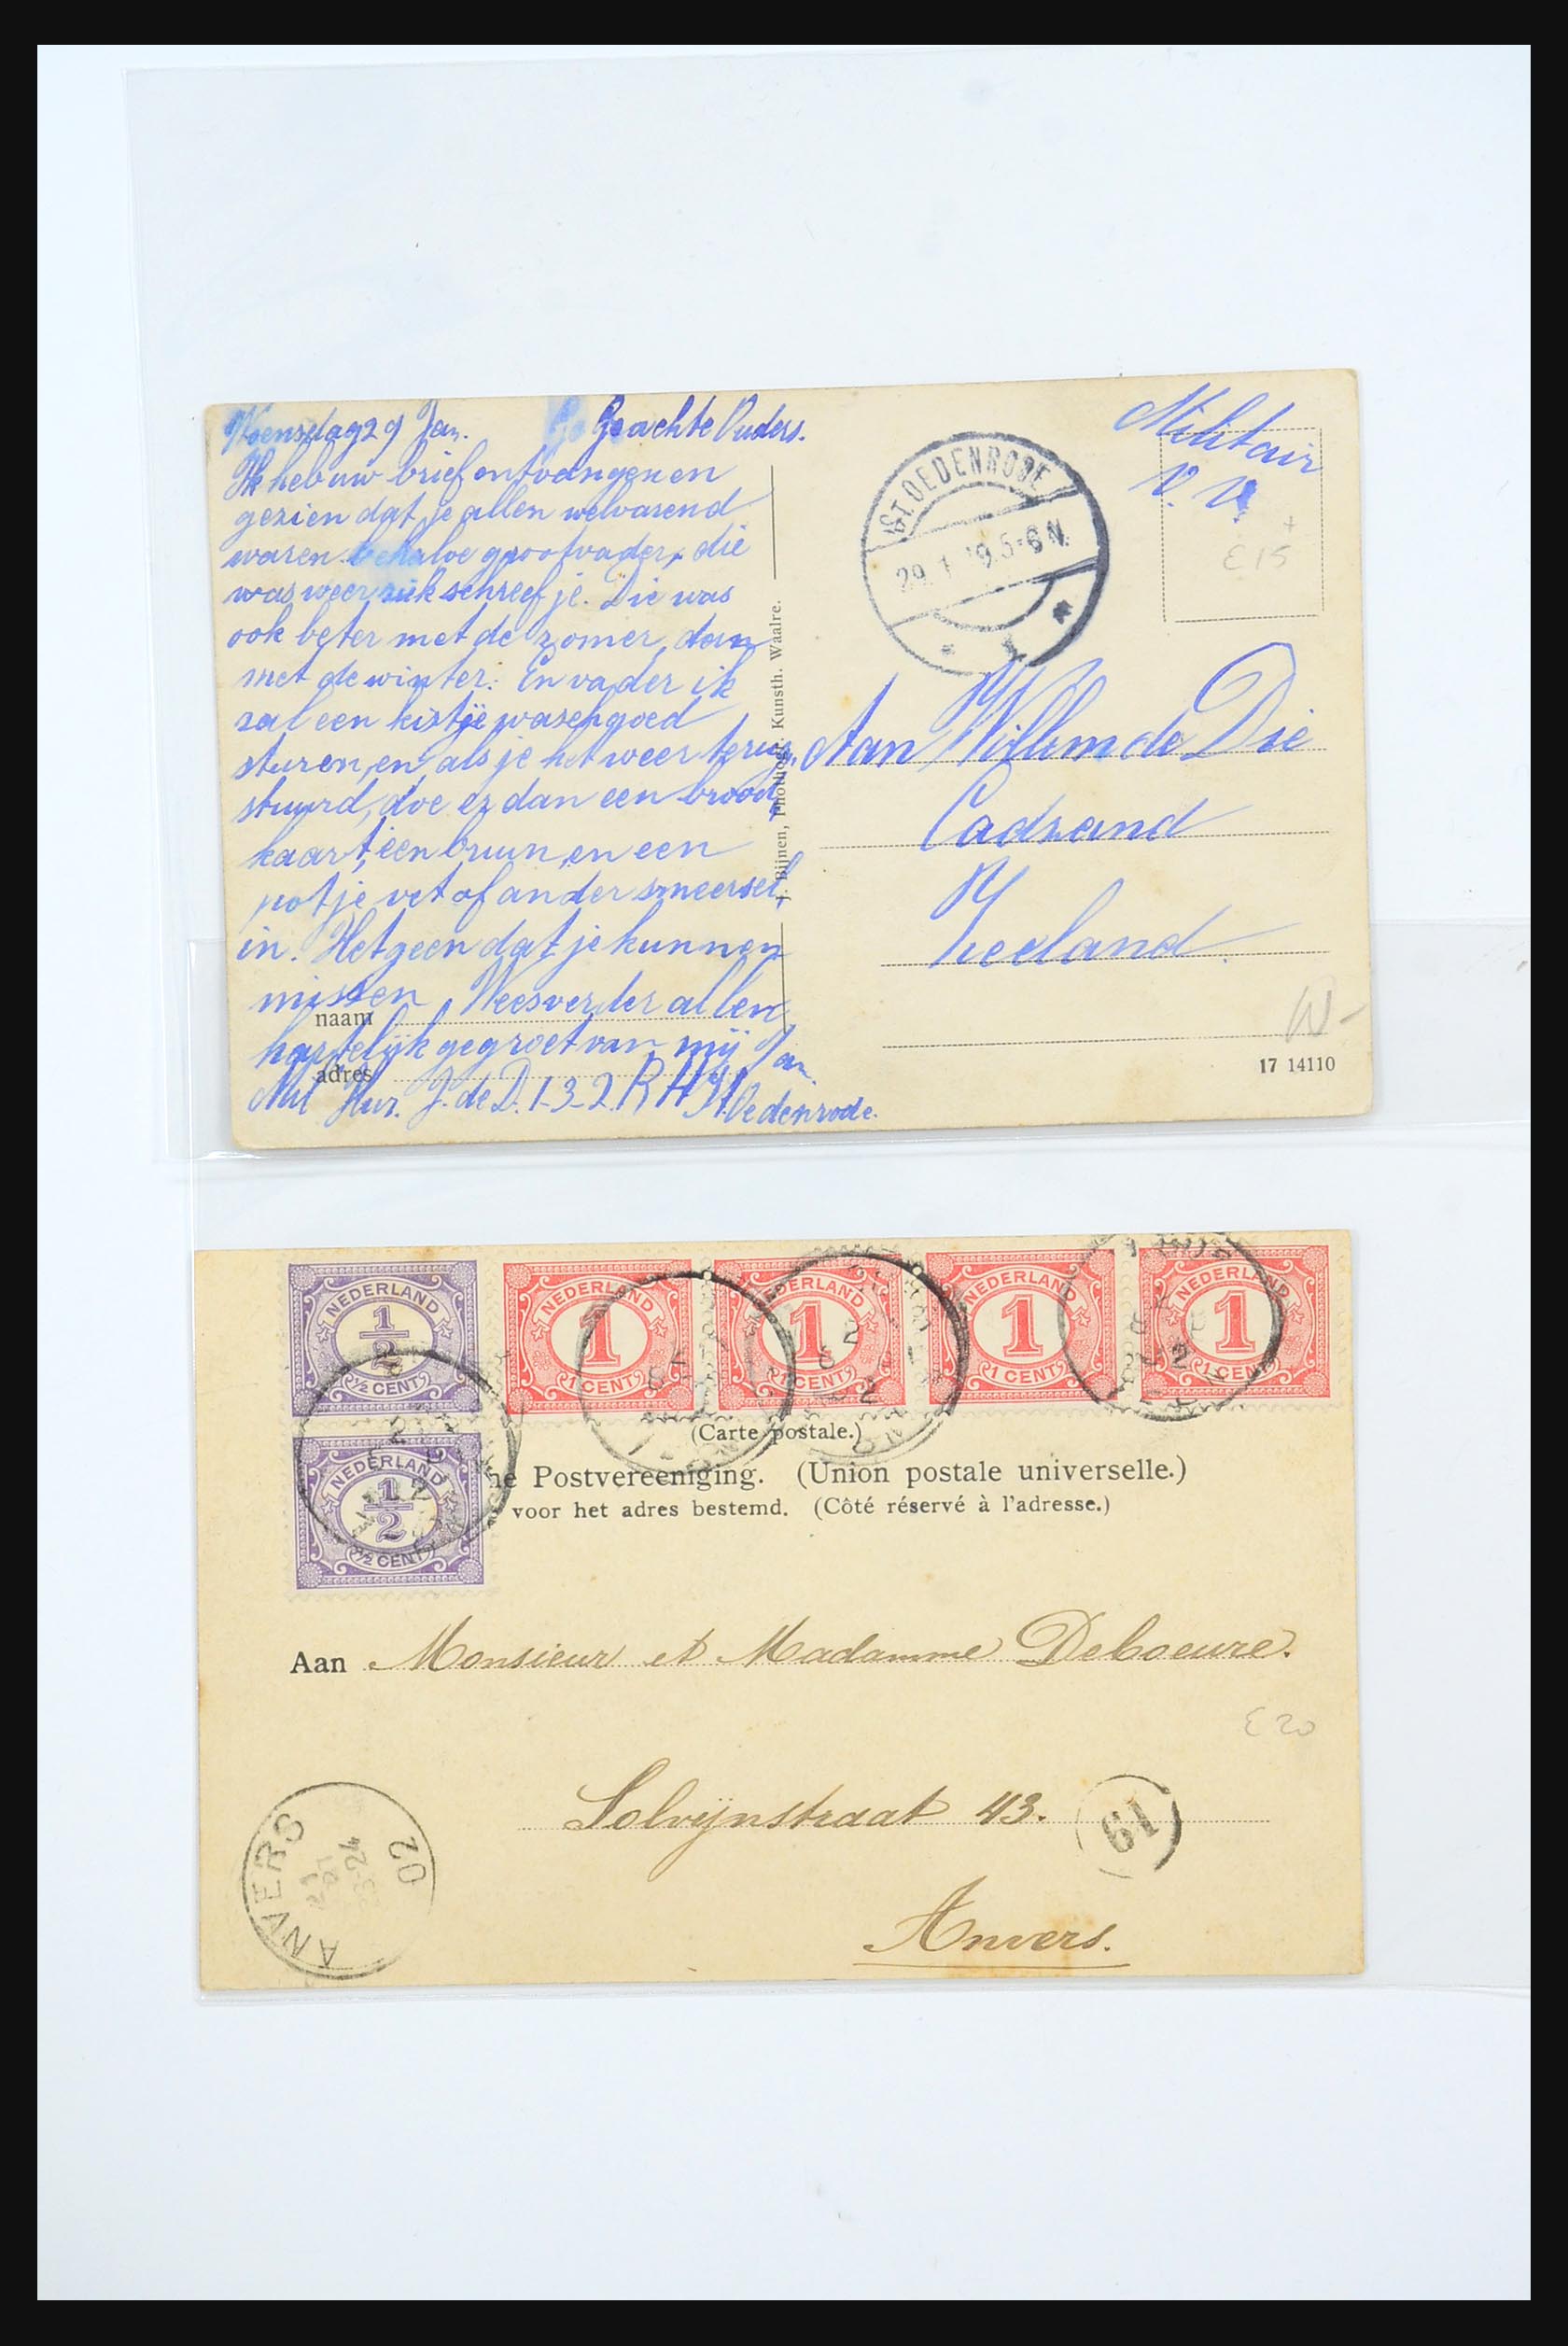 Woensdag 29 Jan. Geachte Ouders.
Ik heb uw brief ontvangen en
gezien dat je allen welvarend
waren behalve grootvader, die
was weer ziek schreef je. Die was
ook beter met de zomer, dan
met de winter. En vader ik
zal een kistje waschgoed
sturen, en als je het weer terug
stuurd, doe er dan een brood
kaart, een bruin, en een
potje vet of ander smeersel,
in. Hetgeen dat je kunnen
missen. Wees verder allen
hartelijk gegroet van mij Jan.
Mil Huz. J. de D. 1-3-2 R H St Oedenrode.
naam
adres
J. Bijnen, Photogr. Kunsth. Waalre.
ST. OEDENRODE
29. 1. 19. 5-6 N.
Militair
V.V.
£ 15
Aan Willem de Die
Cadzand
Zeeland.
17 14110
NEDERLAND
1/2
1/2 CENT
NEDERLAND
1
1 CENT
NEDERLAND
1
1 CENT
NEDERLAND
1
1 CENT
NEDERLAND
1
1 CENT
NEDERLAND
1/2
1/2 CENT
(Carte postale.)
ne Postvereeniging. (Union postale universelle.)
voor het adres bestemd. (Côté réservé à l'adresse.)
Aan Monsieur et Madamme Deboeure.
£ 20
Solvijnstraat 43.
61
Anvers.
ANVERS
02